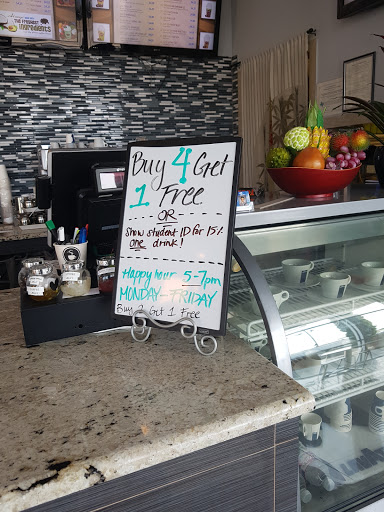 THE FRESHEST
ingredients
Buy 4 Get
1 Free
OR
Show student ID for 15%
one drink!
Happy hour 5-7pm
MONDAY-FRIDAY
Buy 2 Get 1 Free